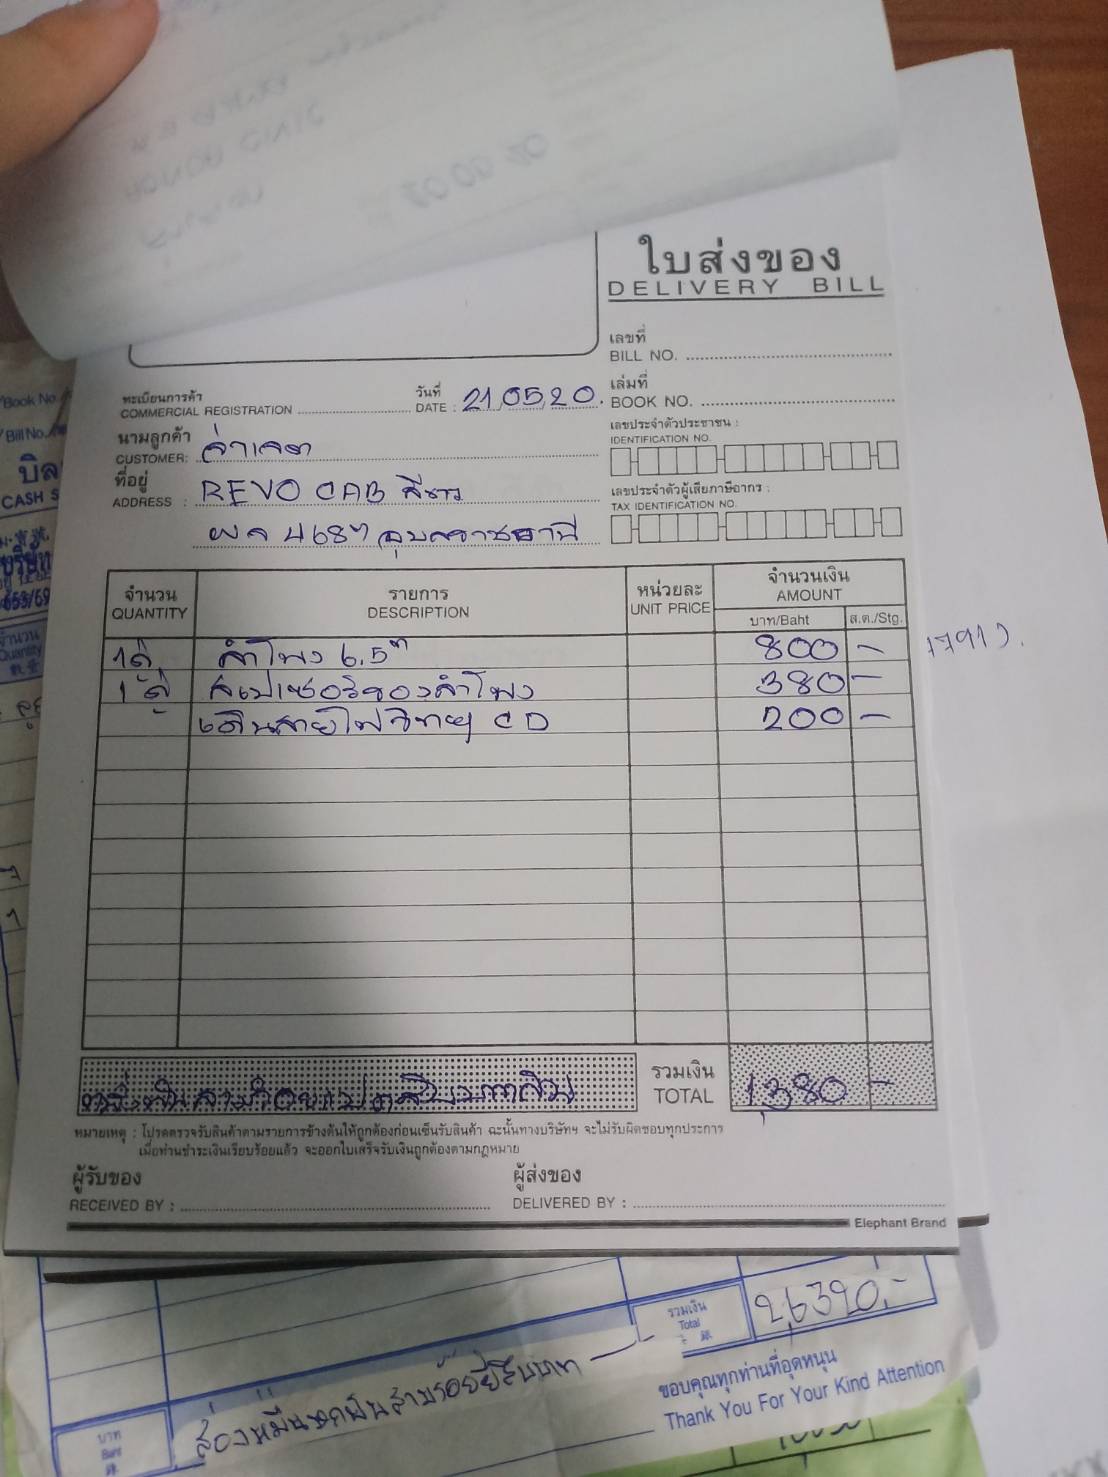 ใบส่งของ
DELIVERY BILL
เลขที่
BILL NO.
ทะเบียนการค้า
COMMERCIAL REGISTRATION
วันที่
DATE : 21.05.20.
เล่มที่
BOOK NO.
นามลูกค้า
CUSTOMER:
เลขประจำตัวประชาชน :
IDENTIFICATION NO.
ที่อยู่
ADDRESS : REVO CAB สีขาว
เลขประจำตัวผู้เสียภาษีอากร :
TAX IDENTIFICATION NO.
อุบลราชธานี
จำนวน
QUANTITY
รายการ
DESCRIPTION
หน่วยละ
UNIT PRICE
จำนวนเงิน
AMOUNT
บาท/Baht
ส.ต./Stg.
1คู่ ลำโพง 6.5" 800 -
1คู่ สเปเซอร์รองลำโพง 380 -
เดินสายไฟวิทยุ CD 200 -
หนึ่งพันสามร้อยแปดสิบบาทถ้วน
รวมเงิน
TOTAL
1,380 -
หมายเหตุ : โปรดตรวจรับสินค้าตามรายการข้างต้นให้ถูกต้องก่อนเซ็นรับสินค้า ฉะนั้นทางบริษัทฯ จะไม่รับผิดชอบทุกประการ
เมื่อท่านชำระเงินเรียบร้อยแล้ว จะออกใบเสร็จรับเงินถูกต้องตามกฎหมาย
ผู้รับของ
RECEIVED BY :
ผู้ส่งของ
DELIVERED BY :
Elephant Brand
Book No.
Bill No.
บิล
CASH S
บริษัท
จำนวน
Quantity
รวมเงิน
Total
26320.-
บาท
Baht
สองหมื่นหกพันสามร้อยยี่สิบบาท
ขอบคุณทุกท่านที่อุดหนุน
Thank You For Your Kind Attention